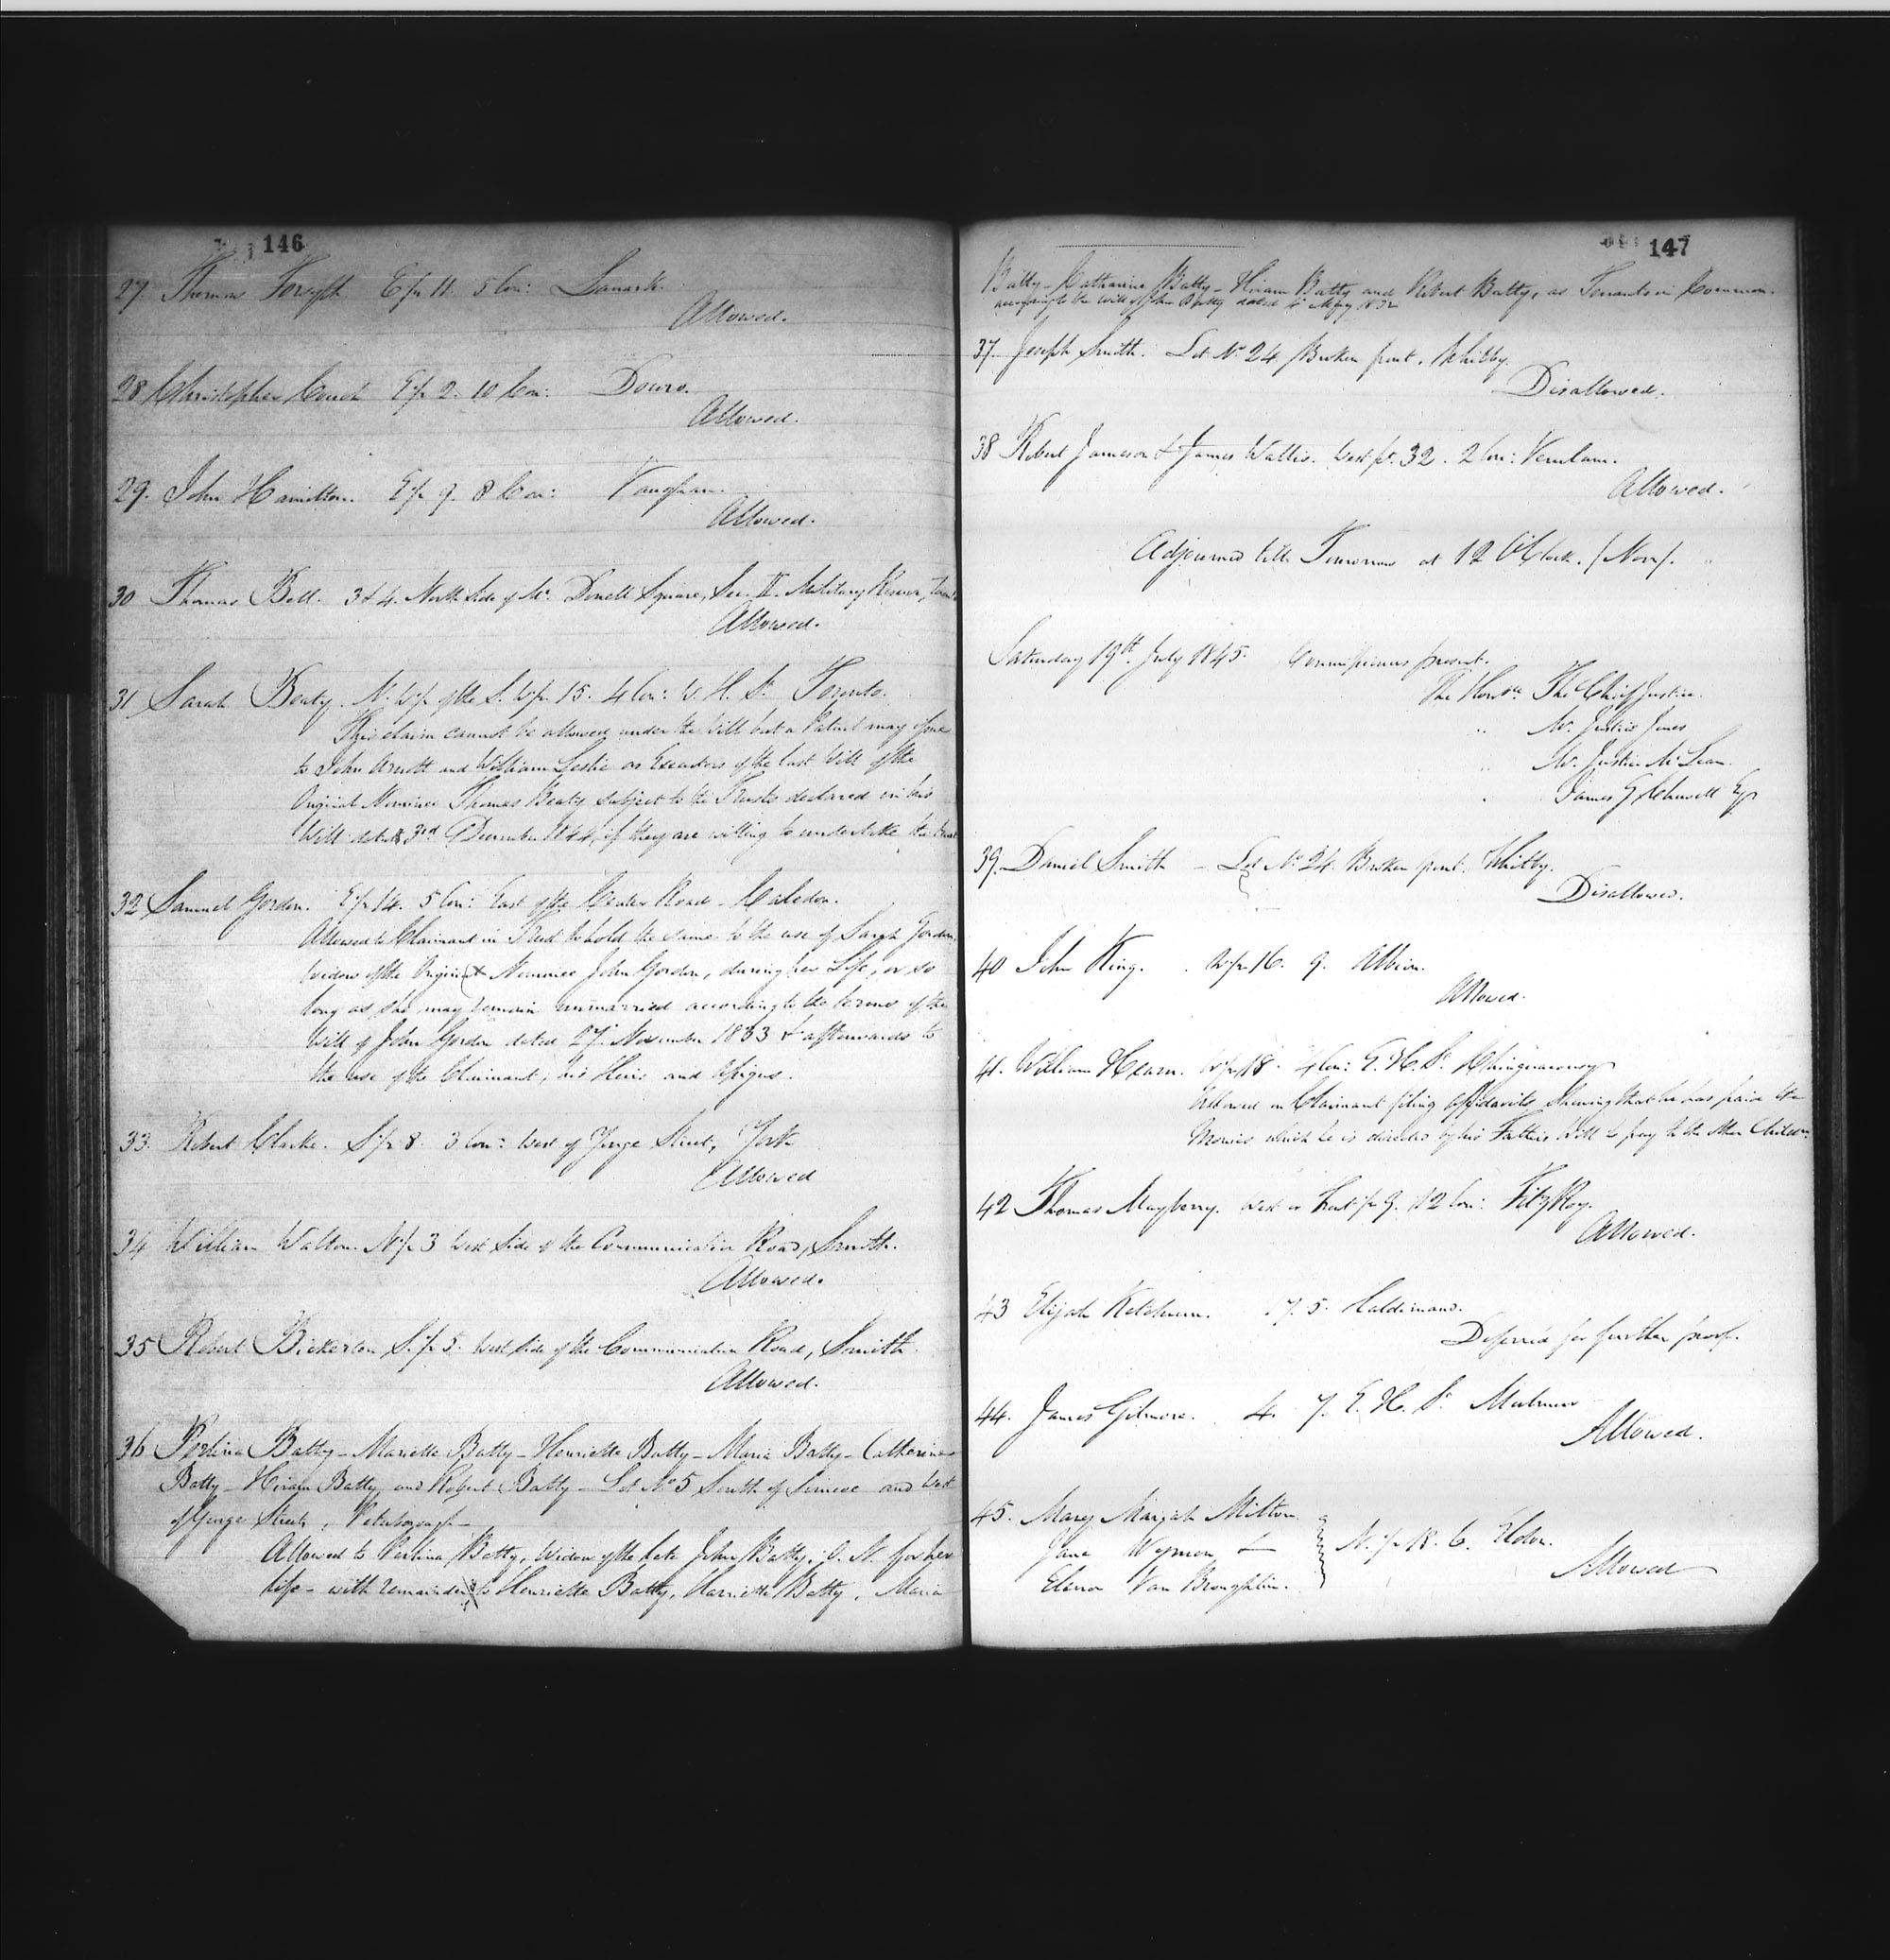 146
27. Thomas Forsyth E pt 11. 5 Con: Lanark.
Allowed.
28 Christopher Couch E pt 2. 10 Con: Douro.
Allowed.
29. John Hamilton. E pt 9. 8 Con: Vaughan.
Allowed.
30 Thomas Bell. 3 & 4. North Side of Mc Donell Square, Sec. II. Military Reserve,
Allowed.
31 Sarah Beaty. N. W pt of the S. W pt. 15. 4 Con: W. H. St. Toronto.
This claim cannot be allowed under the Will but a Patent may
to John Arnott and William Leslie as Executors of the last Will of the
Original Nominee Thomas Beaty subject to the Trusts declared in his
Will dated 3rd December 1844, if they are willing to undertake the
32 Samuel Gordon. E pt 14. 5 Con: East of the Center Road - Caledon.
Allowed to Claimant in Trust to hold the same to the use of Sarah Gordon,
Widow of the Original Nominee John Gordon, during her Life, or so
long as she may remain unmarried according to the terms of the
Will of John Gordon dated 27. November 1833 & afterwards to
the use of the Claimant, his Heirs and Assigns.
33. Robert Clarke. S. pt 8. 3 Con: West of Yonge Street, York
Allowed
34 William Walton. N. pt 3 West Side of the Communication Road, Smith.
Allowed.
35 Robert Bickerton S. pt 5. West side of the Communication Road, Smith.
Allowed.
36 Batty - Mariette Batty - Henriette Batty - Maria Batty - Catherine
Batty - Hiram Batty, and Robert Batty - Lot No 5 South of Simcoe and West
of George Street, Peterborough -
Allowed to Batty, Widow of the late John Batty, for her
life - with remainder to Henriette Batty, Batty, Maria
147
Batty - Catharine Batty - Hiram Batty and Robert Batty, as Tenants in Common.
the will of John Batty dated
37. Joseph Smith. Lot No 24 Broken front, Whitby.
Disallowed.
38 Robert Jameson & James Wallis. West pt. 32. 2 Con: Verulam.
Allowed.
Adjourned till Tomorrow at 12 O'Clock. (Noon).
Saturday 19th July 1845. Commissioners present.
The Honble The Chief Justice.
" Mr. Justice Jones
" Mr. Justice McLean.
James G. Chewett Esqr
39. Daniel Smith - Lot No 24. Broken front. Whitby.
Disallowed.
40 John King. W pt 16. 9. Albion.
Allowed.
41. William Hearn. W pt 18. 4 Con: E. H. St. Chinguacousy
Allowed on Claimant filing Affidavits shewing that he has paid the
Monies which he is directed by his Fathers Will to pay to the other Children.
42 Thomas Mayberry. West or Front pt 9. 12 Con: FitzRoy.
Allowed.
43 Elijah Ketchum. 17. 5. Haldimand.
Deferred for further proof.
44. James Gilmore. 4. 7. E. H. St. Mulmur
Allowed.
45. Mary Milton.
Jane Wyman &
Elenor Van Broughlin.
N. pt 18. 6. Eldon.
Allowed